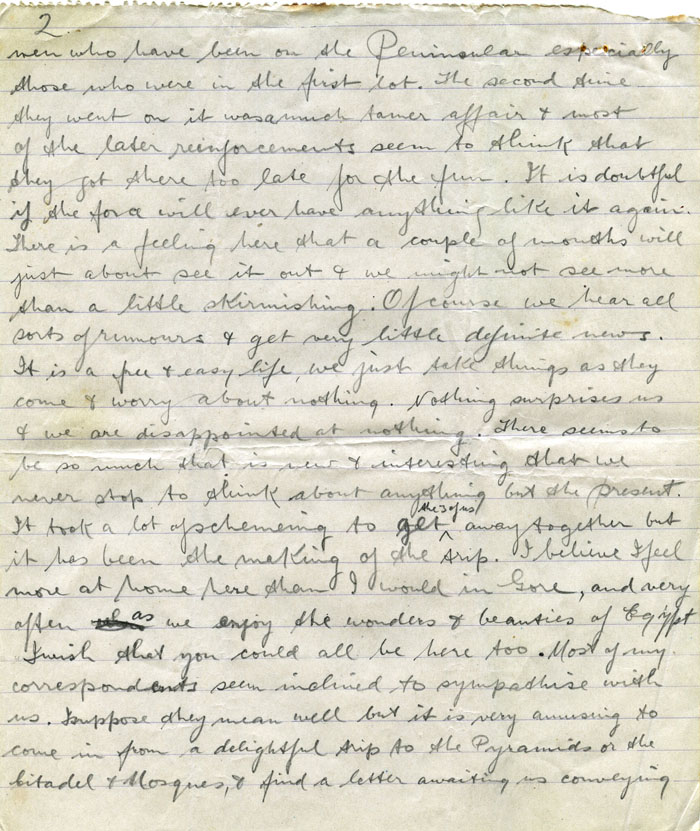 2.
men who have been on the Peninsular especially
those who were in the first lot. The second time
they went on it was a much tamer affair & most
of the later reinforcements seem to think that
they got there too late for the fun. It is doubtful
if the force will ever have anything like it again.
There is a feeling here that a couple of months will
just about see it out & we might not see more
than a little skirmishing. Of course we hear all
sorts of rumours & get very little definite news.
It is a free & easy life, we just take things as they
come & worry about nothing. Nothing surprises us
& we are disappointed at nothing. There seems to
be so much that is new & interesting that we
never stop to think about anything but the present.
It took a lot of schemeing to get the 3 of us away together but
it has been the making of the trip. I believe I feel
more at home here than I would in Gore, and very
often as we enjoy the wonders & beauties of Egypt
I wish that you could all be here too. Most of my
correspondents seem inclined to sympathise with
us. I suppose they mean well but it is very amusing to
come in from a delightful trip to the Pyramids or the
Citadel & Mosques, & find a letter awaiting us conveying